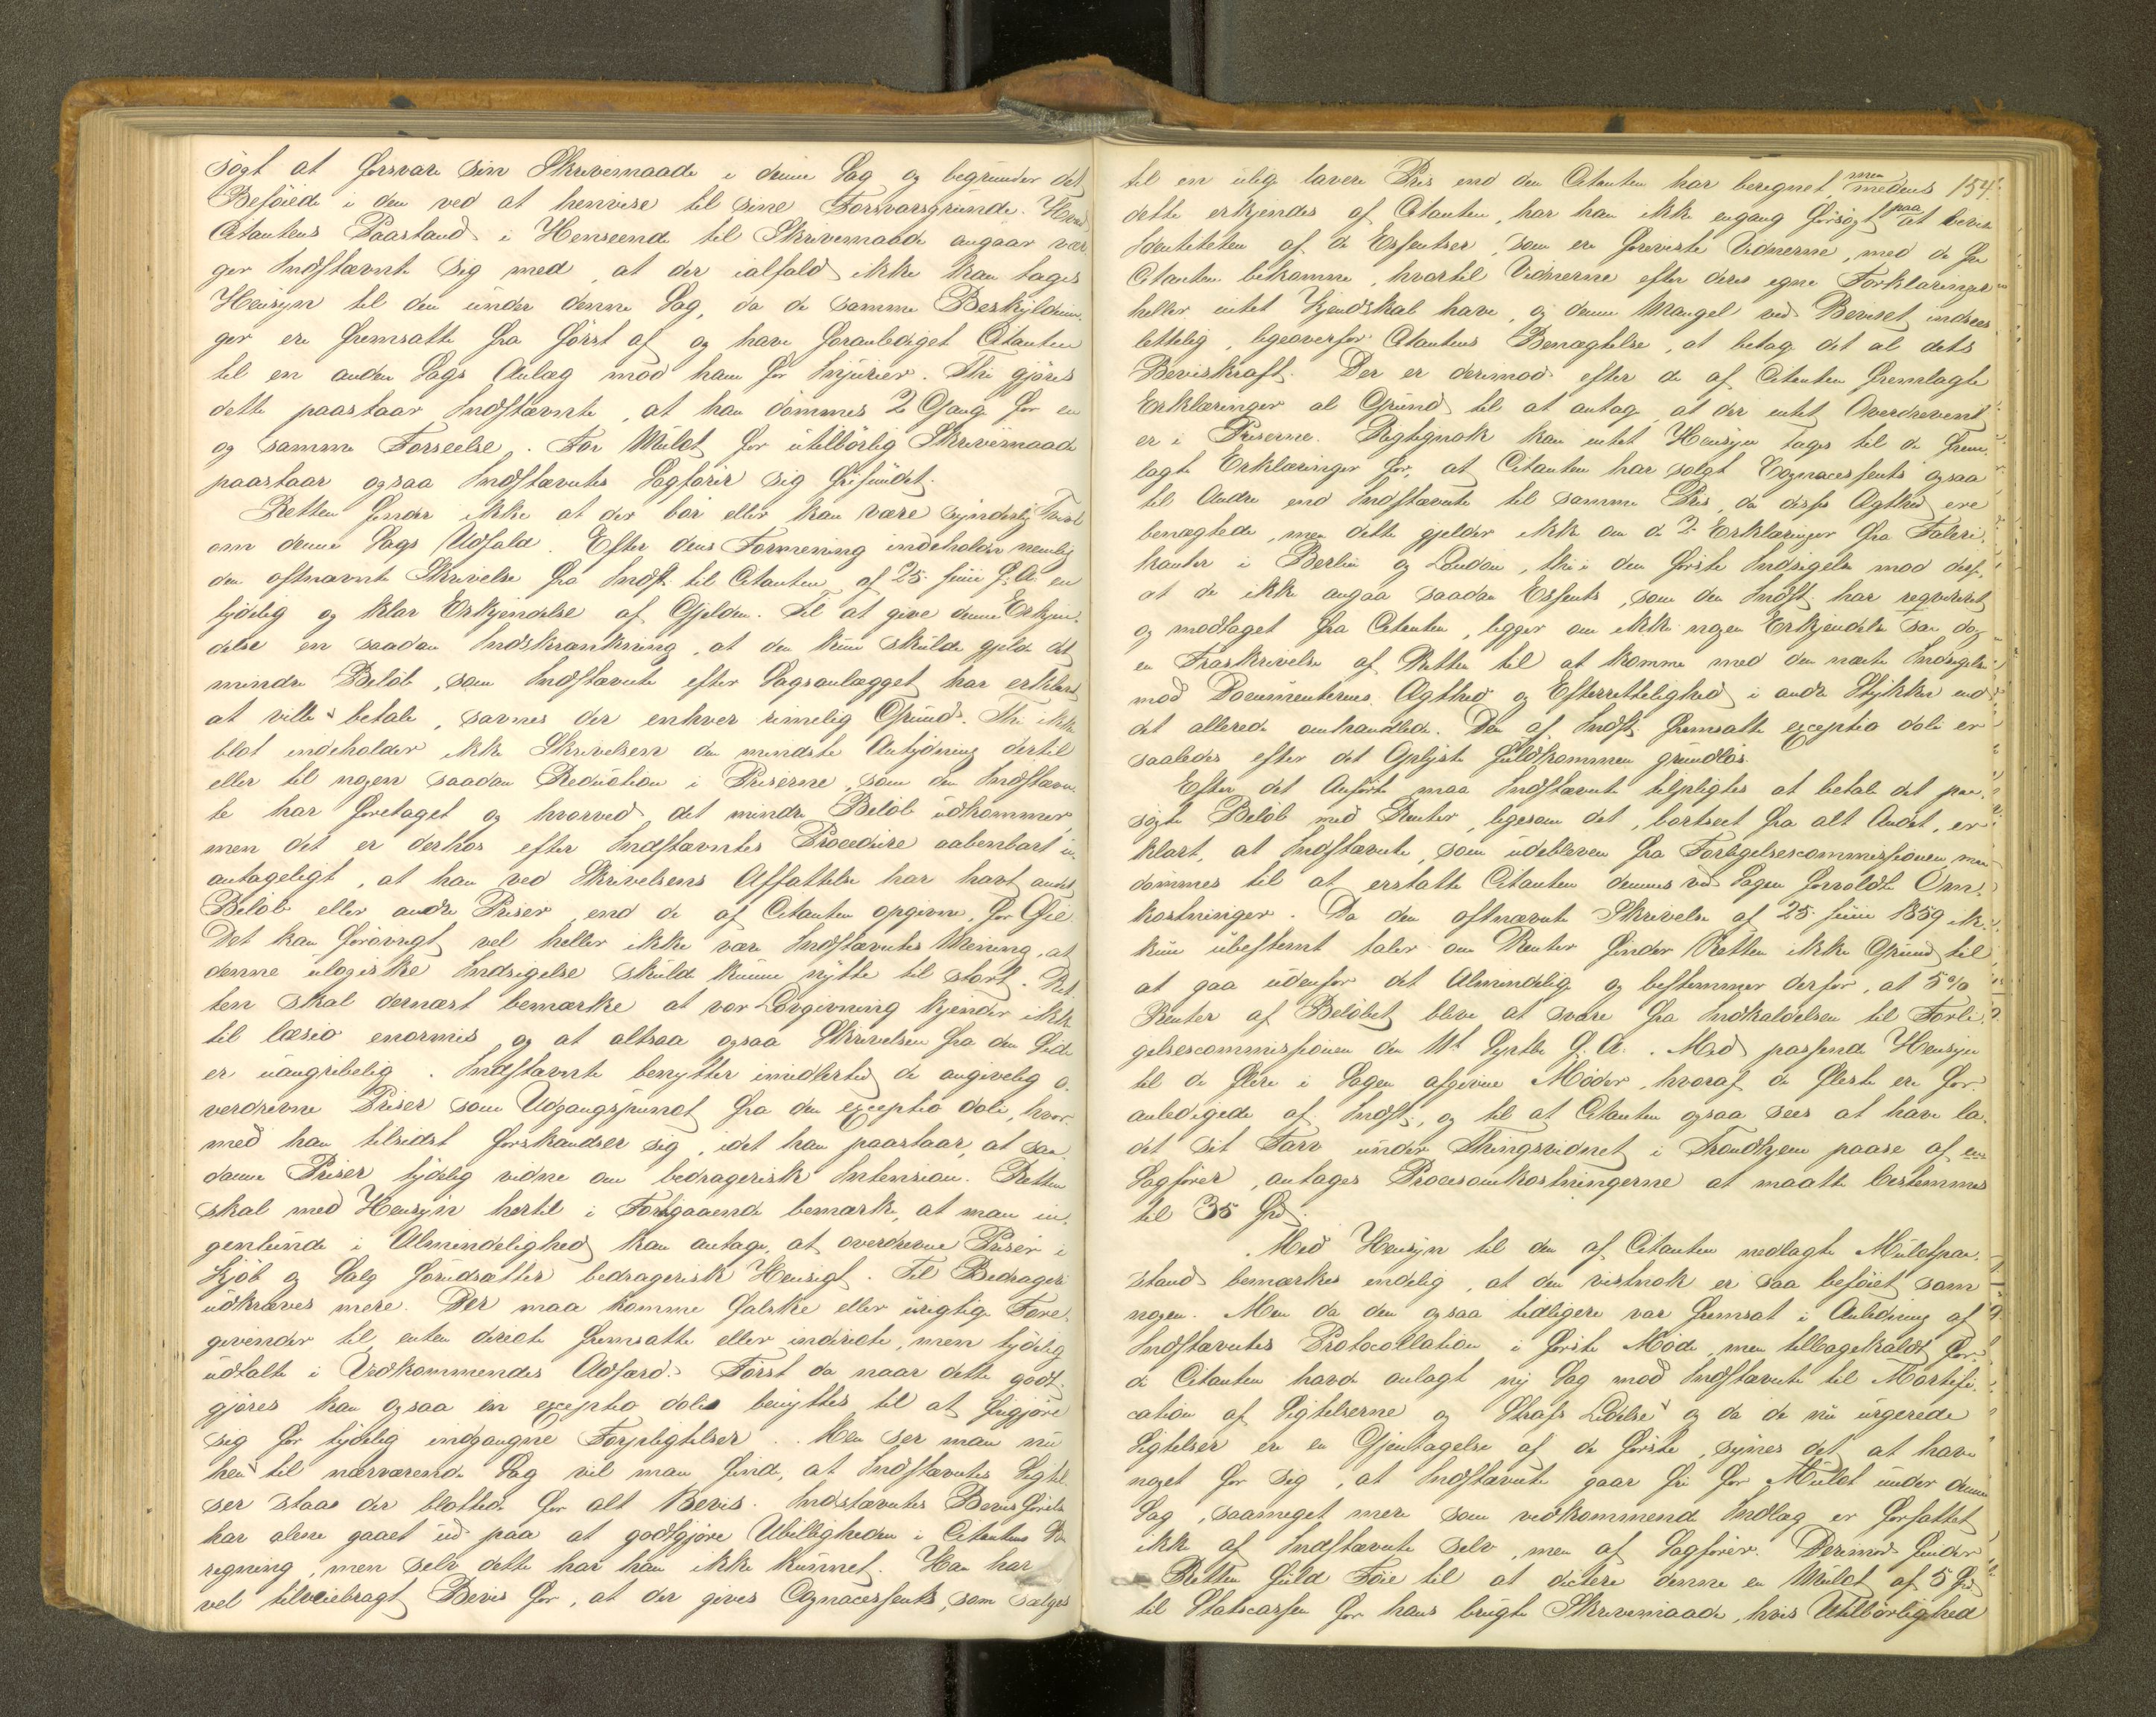 søgt at forsvare sin Skrivemaade i denne Sag og begrunder det
Beføiede i den ved at henvise til sine Forsvarsgrunde. Hvad
Citantens Paastand i Henseende til Skrivemaade angaar vær-
ger Indstævnte sig med, at der ialfald ikke kan tages
Hensyn til den under denne Sag, da de samme Beskyldnin-
ger ere fremsatte fra først af og have foranlediget Citanten
til en anden Sags Anlæg mod ham for Injurier. Thi gjøres
dette paastaar Indstævnte, at han dømmes 2 Gang for en
og samme Forseelse. For Mulct for utilbørlig Skrivemaade
paastaar ogsaa Indstævntes Sagfører sig frifundet.
Retten finder ikke at der bør eller kan være synderlig Tvivl
om denne Sags Udfald. Efter dens Formening indeholder nemlig
den oftnævnte Skrivelse fra Indst. til Citanten af 25 Juni f. A. en
tydelig og klar Erkjendelse af Gjelden. Til at give denne Erkjen-
delse en saadan Indskrænkning, at den kun skulde gjelde det
mindre Beløb, som Indstævnte efter Sagsanlægget har erklæret
at ville betale, savnes der enhver rimelig Grund. Thi ikke
blot indeholder ikke Skrivelsen den mindste Antydning dertil
eller til nogen saadan Reduction i Priserne, som den Indstævn-
te har foretaget og hvorved det mindre Beløb udkommer,
men det er derhos efter Indstævntes Procedure aabenbart u-
antageligt, at han ved Skrivelsens Affattelse har havt andet
Beløb eller andre Priser end de af Citanten opgivne, for Øie.
Det kan forøvrigt vel heller ikke være Indstævntes Mening, at
denne ulogiske Indsigelse skulde kunne nytte til stort. Ret-
ten skal dernæst bemærke at vor Lovgivning kjender ikke
til læsio enormis og at altsaa ogsaa Skrivelsen fra den Side
er uangribelig. Indstævnte benytter imidlertid de angivelig o-
verdrevne Priser som Udgangspunct fra den exceptio doli, hvor-
med han tilsidst forskandser sig, idet han paastaar, at saa-
danne Priser tydelig vidne om bedragerisk Intension. Retten
skal med Hensyn hertil i Forbigaaende bemærke, at man in-
genlunde i Almindelighed kan antage, at overdrevne Priser i
Kjøb og Salg forudsætter bedragerisk Hensigt. Til Bedrageri
udkræves mere. Der maa komme falske eller urigtige Fore-
givender til enten directe fremsatte eller indirecte, men tydelig
udtalte i Vedkommendes Adfærd. Først da naar dette godt-
gjøres kan ogsaa en exceptio doli benyttes til at frigjøre
sig for tydelig indgangne Forpligtelser. Men ser man nu
hen til nærværende Sag vil man finde, at Indstævntes Sigtel-
ser staae der blottede for alt Bevis. Indstævntes Bevisførelse
har alene gaaet ud paa at godtgjøre Ubilligheden i Citantens Be-
regning, men selv dette har han ikke kunnet. Han har
vel tilveiebragt Bevis for, at der gives Cognacessents, som sælges
til en ulige lavere Pris end den Citanten har beregnet, men medens 154.
dette erkjendes af Citanten, har han ikke engang forsøgt paa at bevise
Identiteten af de Essentser, som ere foreviste Vidnerne, med de fra
Citanten bekomne, hvortil Vidnerne efter deres egne Forklaringer
heller intet Kjendskab have, og denne Mangel ved Beviset indsees
lettelig, ligeoverfor Citantens Benægtelse, at betage det al dets
Beviskraft. Der er derimod efter de af Citanten fremlagte
Erklæringer al Grund til at antage, at der intet Overdrevent
er i Priserne. Rigtignok kan intet Hensyn tages til de frem-
lagte Erklæringer for, at Citanten har solgt Cognacessents ogsaa
til Andre end Indstævnte til samme Pris, da disses Ægthed ere
benægtede, men dette gjelder ikke om de 2 Erklæringer fra Fabri-
kanter i Berlin og London, thi i den første Indsigelse mod disse,
at de ikke angaa saadan Essents, som den Indst. har reqvireret
og modtaget fra Citanten, ligger om ikke nogen Erkjendelse saa dog
en Fraskrivelse af Retten til at komme med den næste Indsigelse
mod Documenternes Ægthed og Efterrettelighed i andre Stykker end
det allerede omhandlede. Den af Indst. fremsatte exceptio doli er
saaledes efter det Oplyste fuldkommen grundløs.
Efter det Anførte maa Indstævnte tilpligtes at betale det paa-
søgte Beløb med Renter, ligesom det, bortseet fra alt Andet, er
klart, at Indstævnte, som udebleven fra Forligelsescommissionen, maa
dømmes til at erstatte Citanten dennes ved Sagen forvoldte Om-
kostninger. Da den oftnævnte Skrivelse af 25 Juni 1859 ik-
kun ubestemt taler om Renter finder Retten ikke Grund til
at gaa udenfor det Almindelige og bestemmer derfor, at 5 %
Renter af Beløbet blive at svare fra Indkaldelsen til Forli-
gelsescommissionen den 11te Septbr f. A. Med passende Hensyn
til de flere i Sagen afgivne Møder, hvoraf de fleste ere for-
anledigede af Indst., og til at Citanten ogsaa sees at have la-
det sit Tarv under Thingsvidnet i Trondhjem paase af en
Sagfører, antages Procesomkostningerne at maatte bestemmes
til 35 Spd.
Med Hensyn til den af Citanten nedlagte Mulctpaa-
stand bemærkes endelig, at den vistnok er saa beføiet som
nogen. Men da den ogsaa tidligere var fremsat i Anledning af
Indstævntes Protocollation i første Møde, men tilbagekaldt for-
di Citanten havde anlagt ny Sag mod Indstævnte til Mortifi-
cation af Sigtelserne og Strafs Lidelse og da de nu urgerede
Sigtelser ere en Gjentagelse af de første, synes det at have
noget for sig, at Indstævnte gaar fri for Mulct under denne
Sag, saameget mere som vedkommende Indlæg er forfattet
ikke af Indstævnte selv, men af Sagfører. Derimod finder
Retten fuld Føie til at dictere denne en Mulct af 5 Spd
til Statscassen for hans brugte Skrivemaade, hvis Utilbørlighed